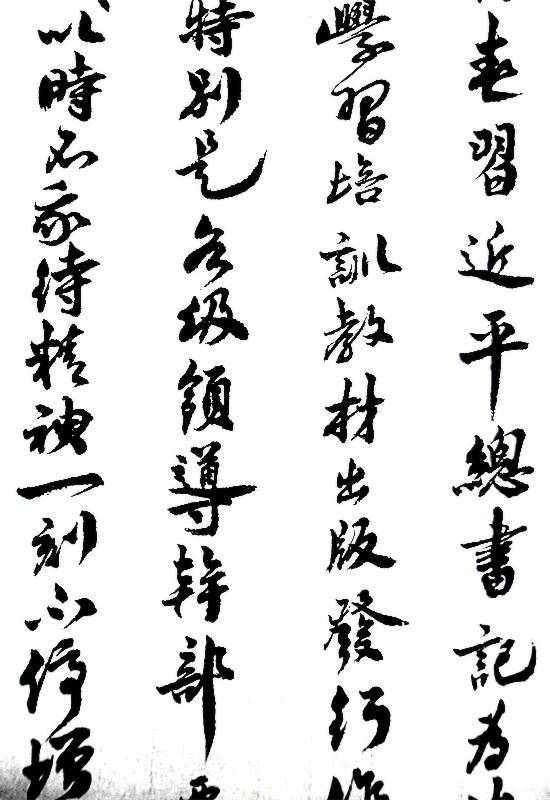 習近平總書記為
學習培訓教材出版發行
特別是各級領導幹部
以時不我待精神一刻不停增